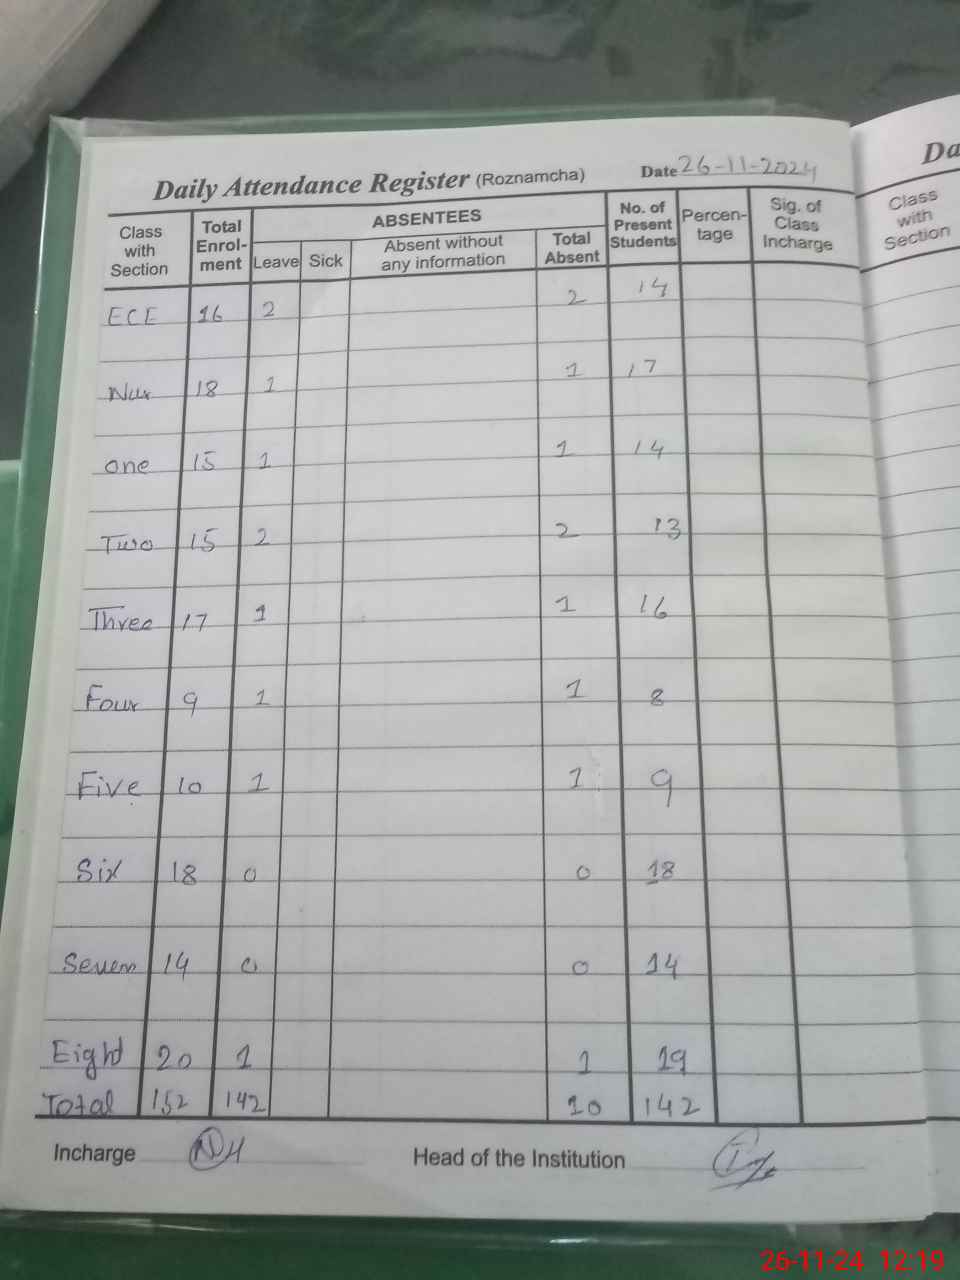 Daily Attendance Register (Roznamcha) Date 26-11-2024
Class with Section Total Enrol-ment ABSENTEES Leave Sick Absent without any information Total Absent No. of Present Students Percen-tage Sig. of Class Incharge
ECE 16 2 2 14
Nur 18 1 1 17
one 15 1 1 14
Two 15 2 2 13
Three 17 1 1 16
Four 9 1 1 8
Five 10 1 1 9
Six 18 0 0 18
Seven 14 0 0 14
Eight 20 1 1 19
Total 152 142 10 142
Incharge Head of the Institution
Da
Class with Section
26-11-24 12:19